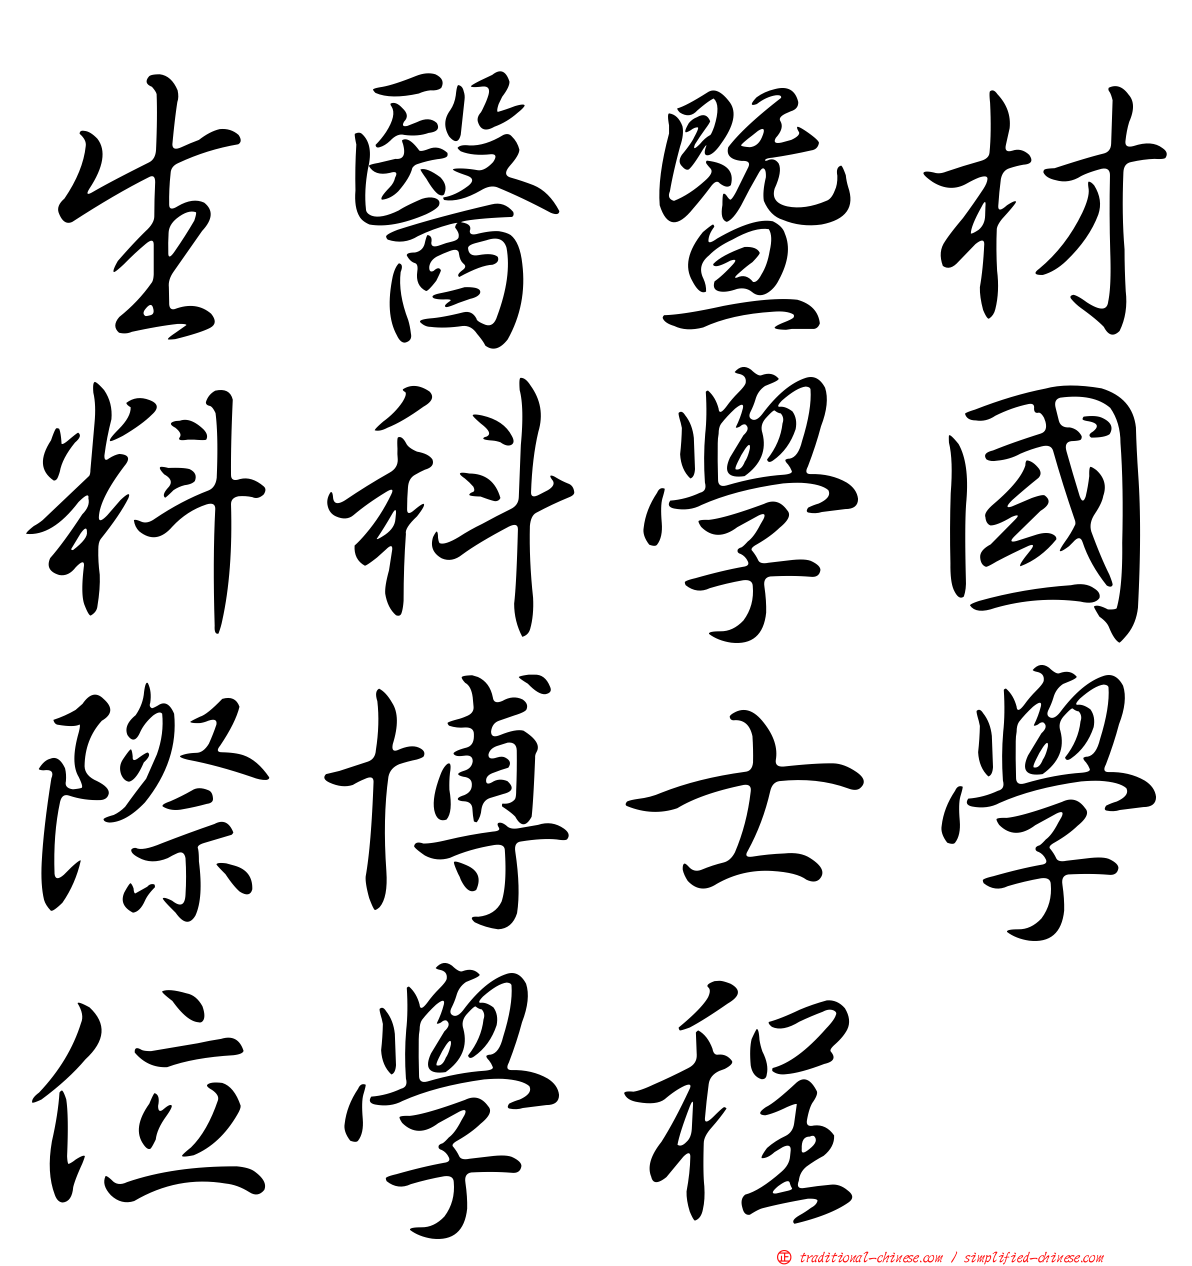 生醫暨材
料科學國
際博士學
位學程
正 traditional-chinese.com / simplified-chinese.com